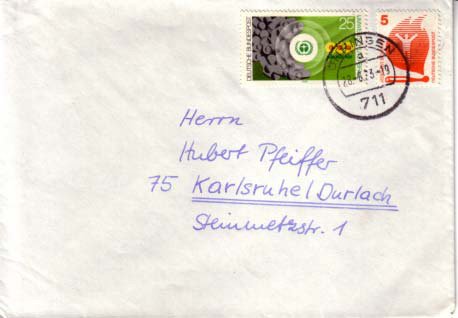 DEUTSCHE BUNDESPOST
25
5
INGEN
a
28.6.73-19
711
Herrn
Hubert Pfeiffer
75 Karlsruhe/Durlach
Steinmetzstr. 1